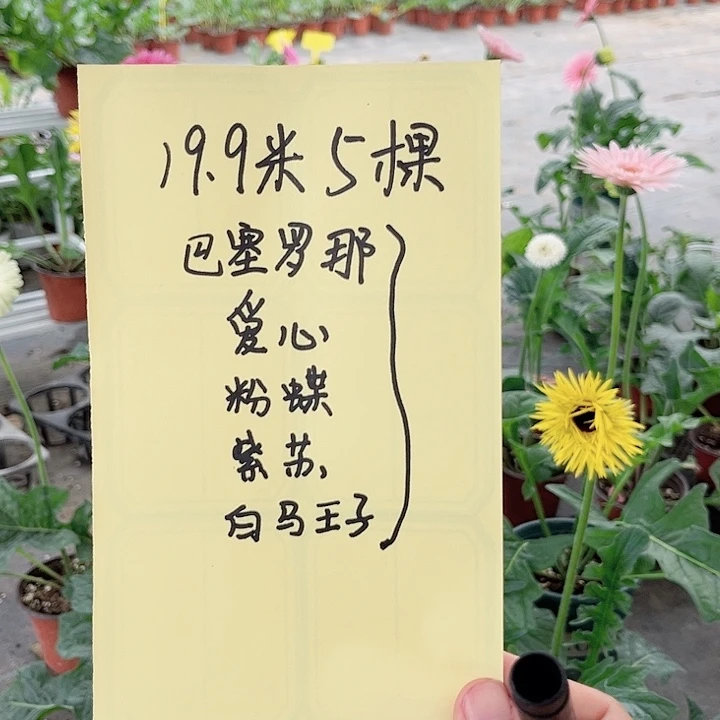 19.9米5棵
巴塞罗那
爱心
粉蝶
紫苏
白马王子